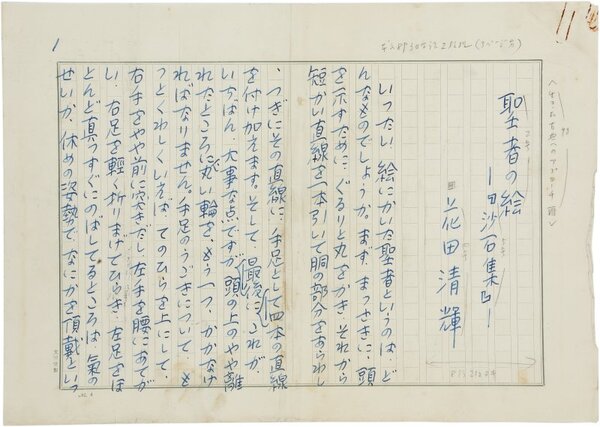 聖者の絵
―「沙石集」―
花田清輝
いったい、絵にかいた聖者というのは、ど
んなものでしょうか。まず、まっさきに、頭
を示すために、ぐるりと丸をかき、それから
短かい直線を一本引いて胴の部分をあらわし
、つぎにその直線に、手足として四本の直線
を付け加えます。そして、最後に、これが、
いちばん、大事な点ですが、頭の上のやや離
れたところに丸い輪を、もう一つ、かかなけ
ればなりません。手足のうごきについて、も
っとくわしくいえば、てのひらを上にして、
右手をやや前に突きだし、左手を腰にあてが
い、右足を軽く折りまげてひらき、左足をほ
とんど真っすぐにのばしてるところは、氣の
せいか、休めの姿勢で、なにかを頂戴といっ
1